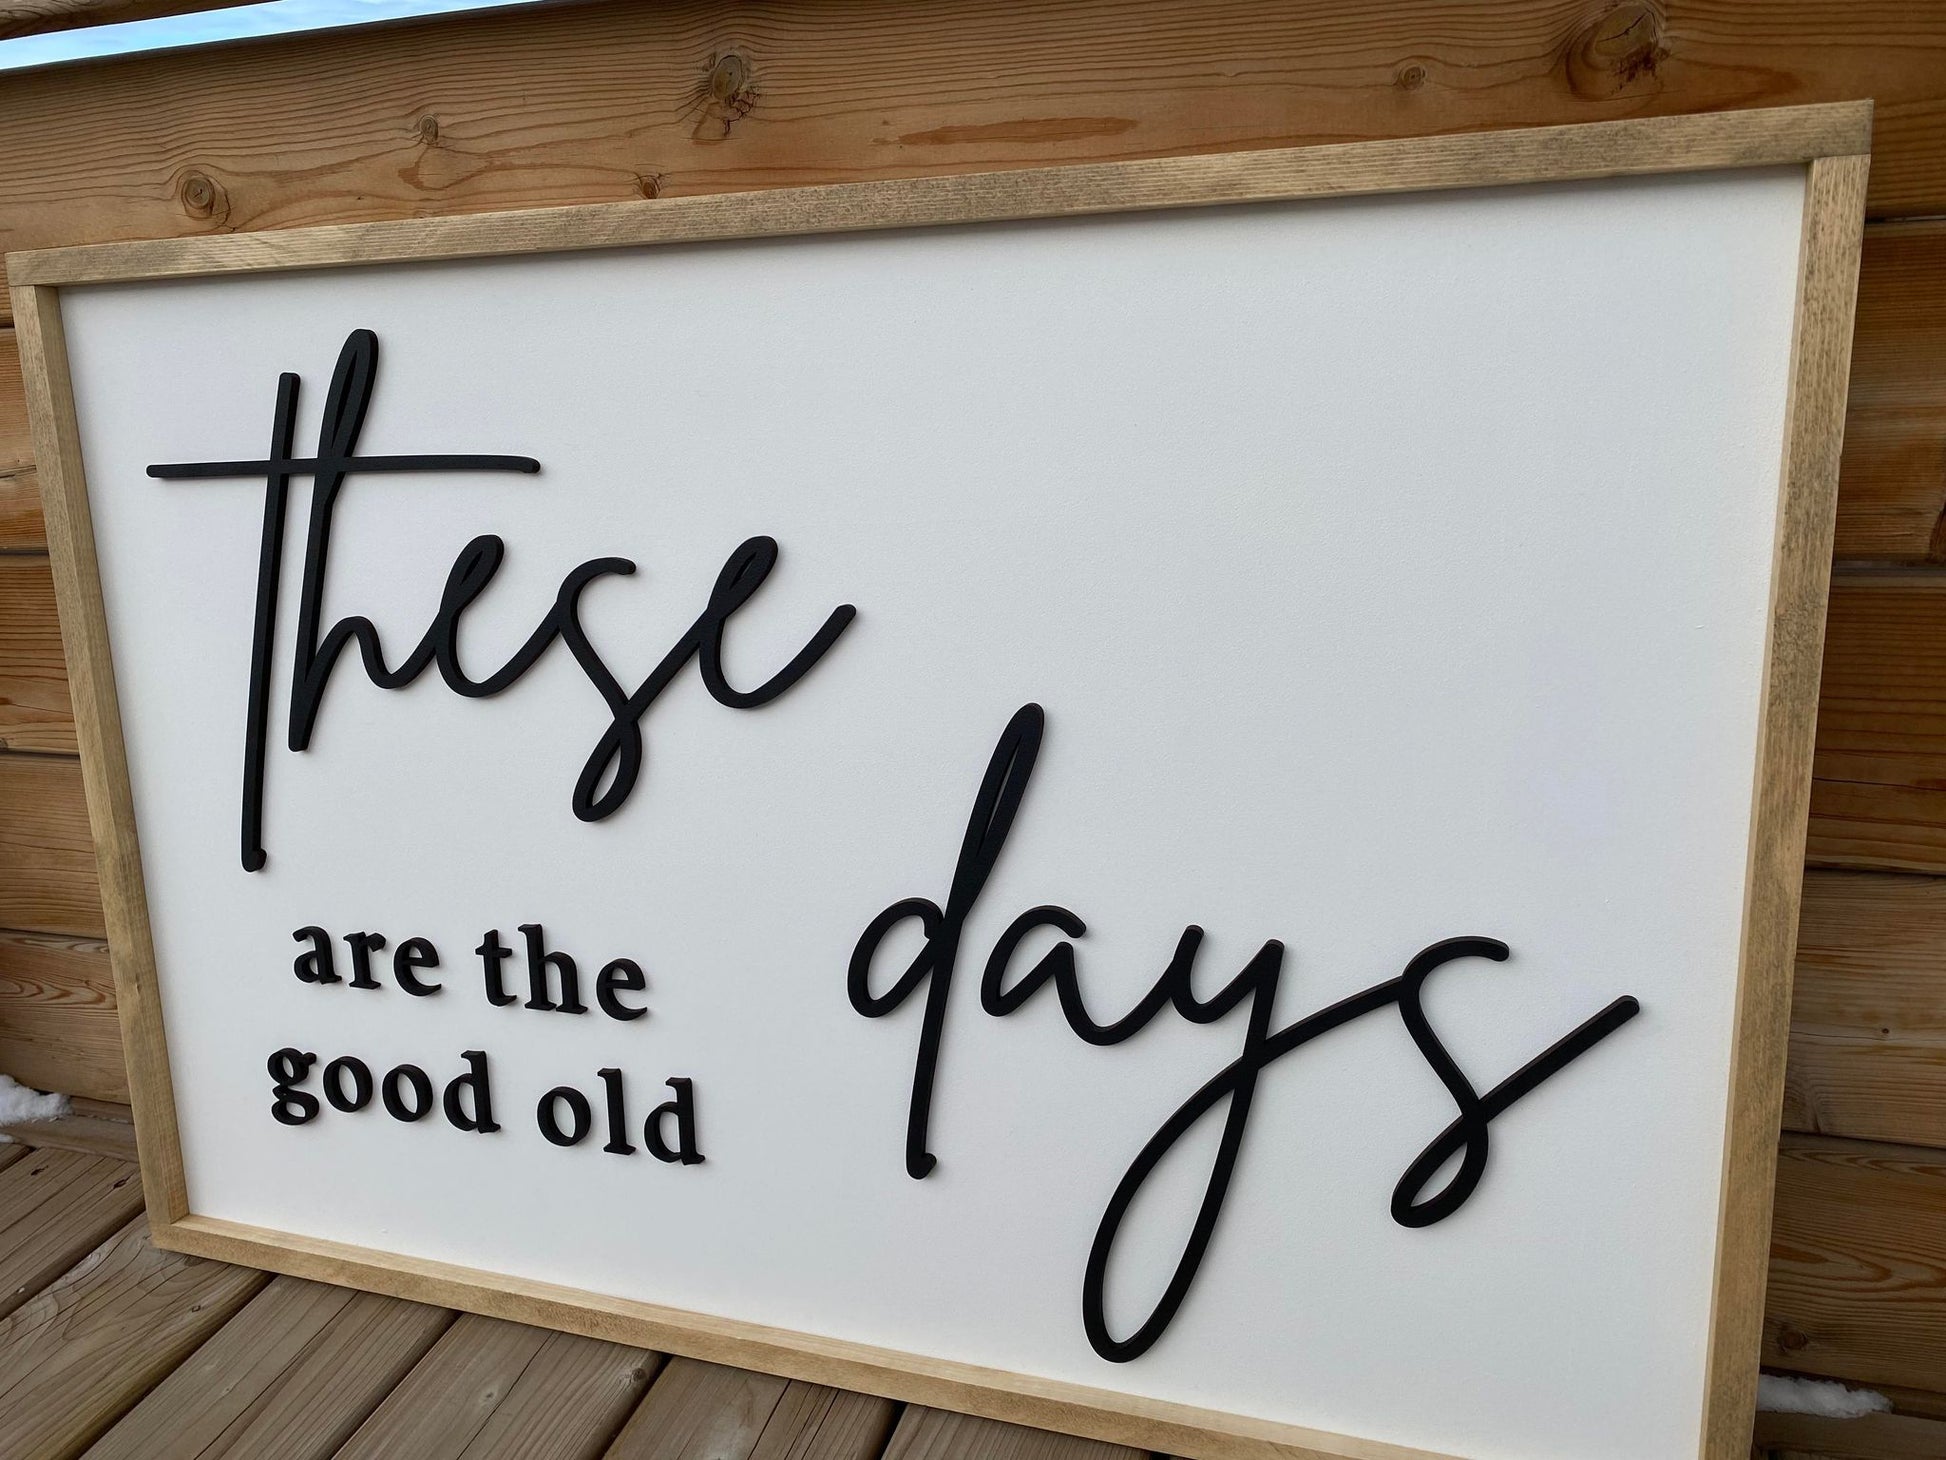 these
are the
good old
days